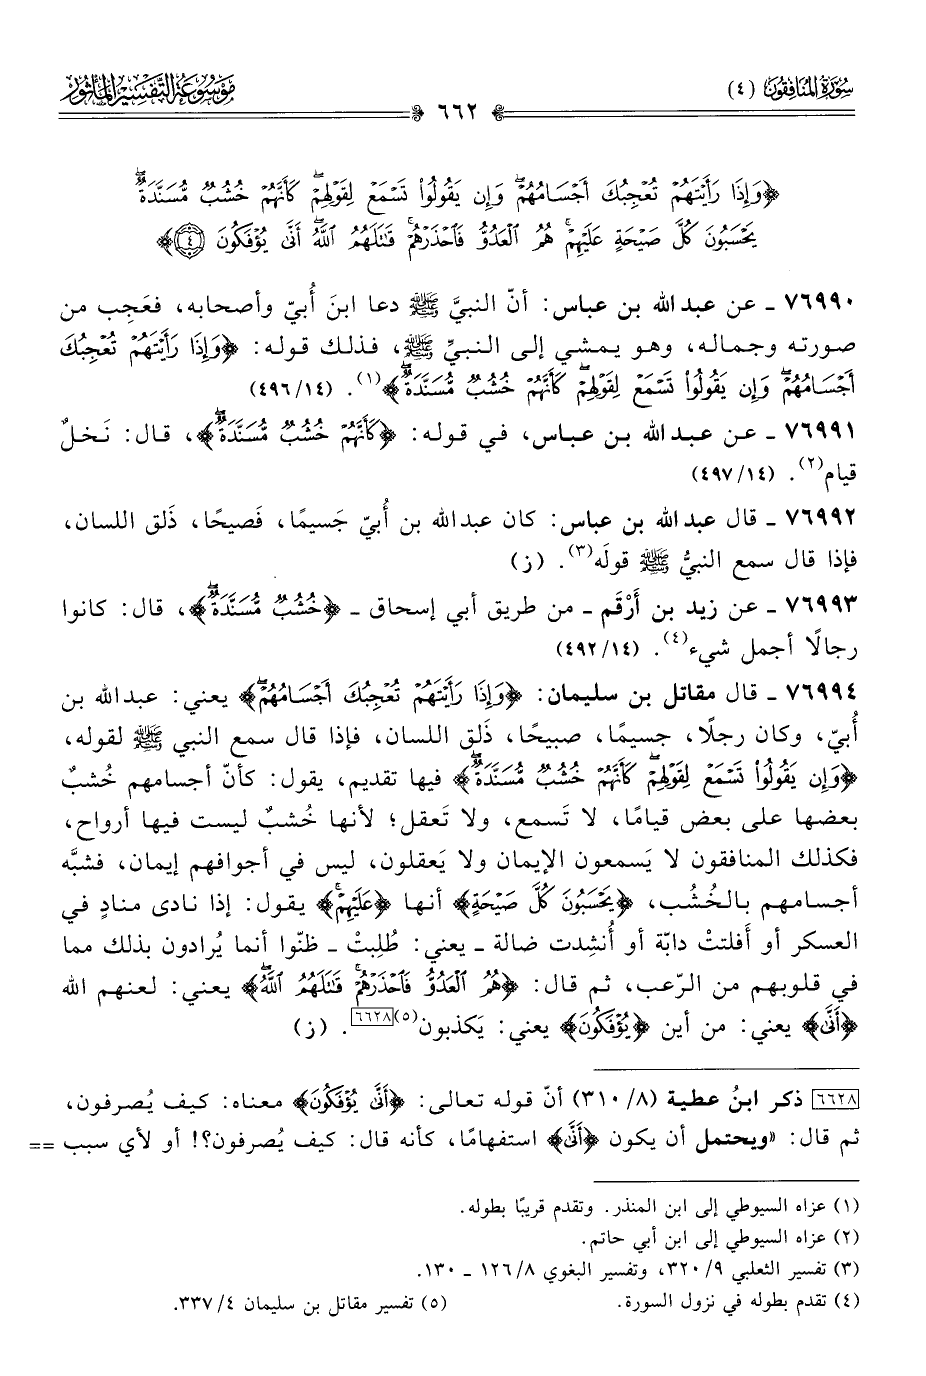 سُورَةُ المُنَافِقُونَ (٤)
مَوْسُوعَةُ التَّفْسِيرِ المَأْثُورِ
٦٦٢
﴿وَإِذَا رَأَيْتَهُمْ تُعْجِبُكَ أَجْسَامُهُمْ ۖ وَإِن يَقُولُوا۟ تَسْمَعْ لِقَوْلِهِمْ ۖ كَأَنَّهُمْ خُشُبٌ مُّسَنَّدَةٌ ۖ
يَحْسَبُونَ كُلَّ صَيْحَةٍ عَلَيْهِمْ ۚ هُمُ الْعَدُوُّ فَاحْذَرْهُمْ ۚ قَاتَلَهُمُ اللَّهُ ۖ أَنَّىٰ يُؤْفَكُونَ ٤﴾
٧٦٩٩٠ ـ عن عبد الله بن عباس: أنّ النبيَّ ﷺ دعا ابنَ أُبيّ وأصحابه، فعَجِب من
صورته وجماله، وهو يمشي إلى النبيِّ ﷺ، فذلك قوله: ﴿وَإِذَا رَأَيْتَهُمْ تُعْجِبُكَ
أَجْسَامُهُمْ ۖ وَإِن يَقُولُوا۟ تَسْمَعْ لِقَوْلِهِمْ ۖ كَأَنَّهُمْ خُشُبٌ مُّسَنَّدَةٌ ۖ﴾(١). (٤٩٦/١٤)
٧٦٩٩١ ـ عن عبد الله بن عباس، في قوله: ﴿كَأَنَّهُمْ خُشُبٌ مُّسَنَّدَةٌ ۖ﴾، قال: نَخلٌ
قيام(٢). (٤٩٧/١٤)
٧٦٩٩٢ ـ قال عبد الله بن عباس: كان عبد الله بن أُبيّ جَسيمًا، فَصيحًا، ذَلق اللسان،
فإذا قال سمع النبيُّ ﷺ قولَه(٣). (ز)
٧٦٩٩٣ ـ عن زيد بن أَرْقَم ـ من طريق أبي إسحاق ـ ﴿خُشُبٌ مُّسَنَّدَةٌ ۖ﴾، قال: كانوا
رجالًا أجمل شيء(٤). (٤٩٢/١٤)
٧٦٩٩٤ ـ قال مقاتل بن سليمان: ﴿وَإِذَا رَأَيْتَهُمْ تُعْجِبُكَ أَجْسَامُهُمْ ۖ﴾ يعني: عبد الله بن
أُبيّ، وكان رجلًا، جسيمًا، صبيحًا، ذَلِق اللسان، فإذا قال سمع النبي ﷺ لقوله،
﴿وَإِن يَقُولُوا۟ تَسْمَعْ لِقَوْلِهِمْ ۖ كَأَنَّهُمْ خُشُبٌ مُّسَنَّدَةٌ ۖ﴾ فيها تقديم، يقول: كأنّ أجسامهم خُشبٌ
بعضها على بعض قيامًا، لا تَسمع، ولا تَعقل؛ لأنها خُشبٌ ليست فيها أرواح،
فكذلك المنافقون لا يَسمعون الإيمان ولا يَعقلون، ليس في أجوافهم إيمان، فشبَّه
أجسامهم بالخُشُب، ﴿يَحْسَبُونَ كُلَّ صَيْحَةٍ﴾ أنها ﴿عَلَيْهِمْ ۚ﴾ يقول: إذا نادى منادٍ في
العسكر أو أَفلتتْ دابّة أو أُنشِدت ضالة ـ يعني: طُلِبتْ ـ ظنّوا أنما يُرادون بذلك مما
في قلوبهم من الرّعب، ثم قال: ﴿هُمُ الْعَدُوُّ فَاحْذَرْهُمْ ۚ قَاتَلَهُمُ اللَّهُ ۖ﴾ يعني: لعنهم الله
﴿أَنَّىٰ﴾ يعني: من أين ﴿يُؤْفَكُونَ﴾ يعني: يَكذبون(٥)[٦٦٢٨]. (ز)
[٦٦٢٨] ذكر ابنُ عطية (٣١٠/٨) أنّ قوله تعالى: ﴿أَنَّىٰ يُؤْفَكُونَ﴾ معناه: كيف يُصرفون،
ثم قال: «ويحتمل أن يكون ﴿أَنَّىٰ﴾ استفهامًا، كأنه قال: كيف يُصرفون؟! أو لأي سبب ==
(١) عزاه السيوطي إلى ابن المنذر. وتقدم قريبًا بطوله.
(٢) عزاه السيوطي إلى ابن أبي حاتم.
(٣) تفسير الثعلبي ٣٢٠/٩، وتفسير البغوي ١٢٦/٨ ـ ١٣٠.
(٤) تقدم بطوله في نزول السورة. (٥) تفسير مقاتل بن سليمان ٣٣٧/٤.